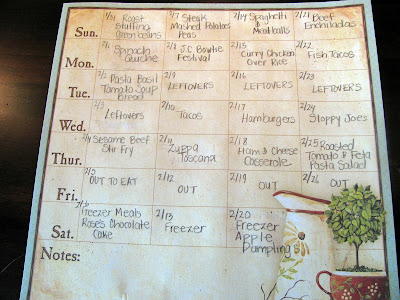 Sun.
1/31 Roast
Stuffing
Green beans
2/7 Steak
Mashed Potatoes
Peas
2/14 Spaghetti
&
Meatballs
2/21 Beef
Enchiladas
Mon.
2/1 Spinach
Quiche
2/8 J.C Bowtie
Festival
2/15
Curry Chicken
Over Rice
2/22
Fish Tacos
Tue.
2/2 Pasta Basil
Tomato Soup
Bread
2/9
LEFTOVERS
2/16
LEFTOVERS
2/23
LEFTOVERS
Wed.
2/3
Leftovers
2/10
Tacos
2/17
Hamburgers
2/24
Sloppy Joes
Thur.
2/4 Sesame Beef
Stir Fry
2/11
Zuppa
Toscana
2/18
Ham & Cheese
Casserole
2/25 Roasted
Tomato & Feta
Pasta Salad
Fri.
2/5
OUT TO EAT
2/12
OUT
2/19
OUT
2/26 OUT
Sat.
2/6
Freezer Meals
Rose's Chocolate
Cake
2/13
Freezer
2/20
Freezer
Apple
Dumpling
Notes: